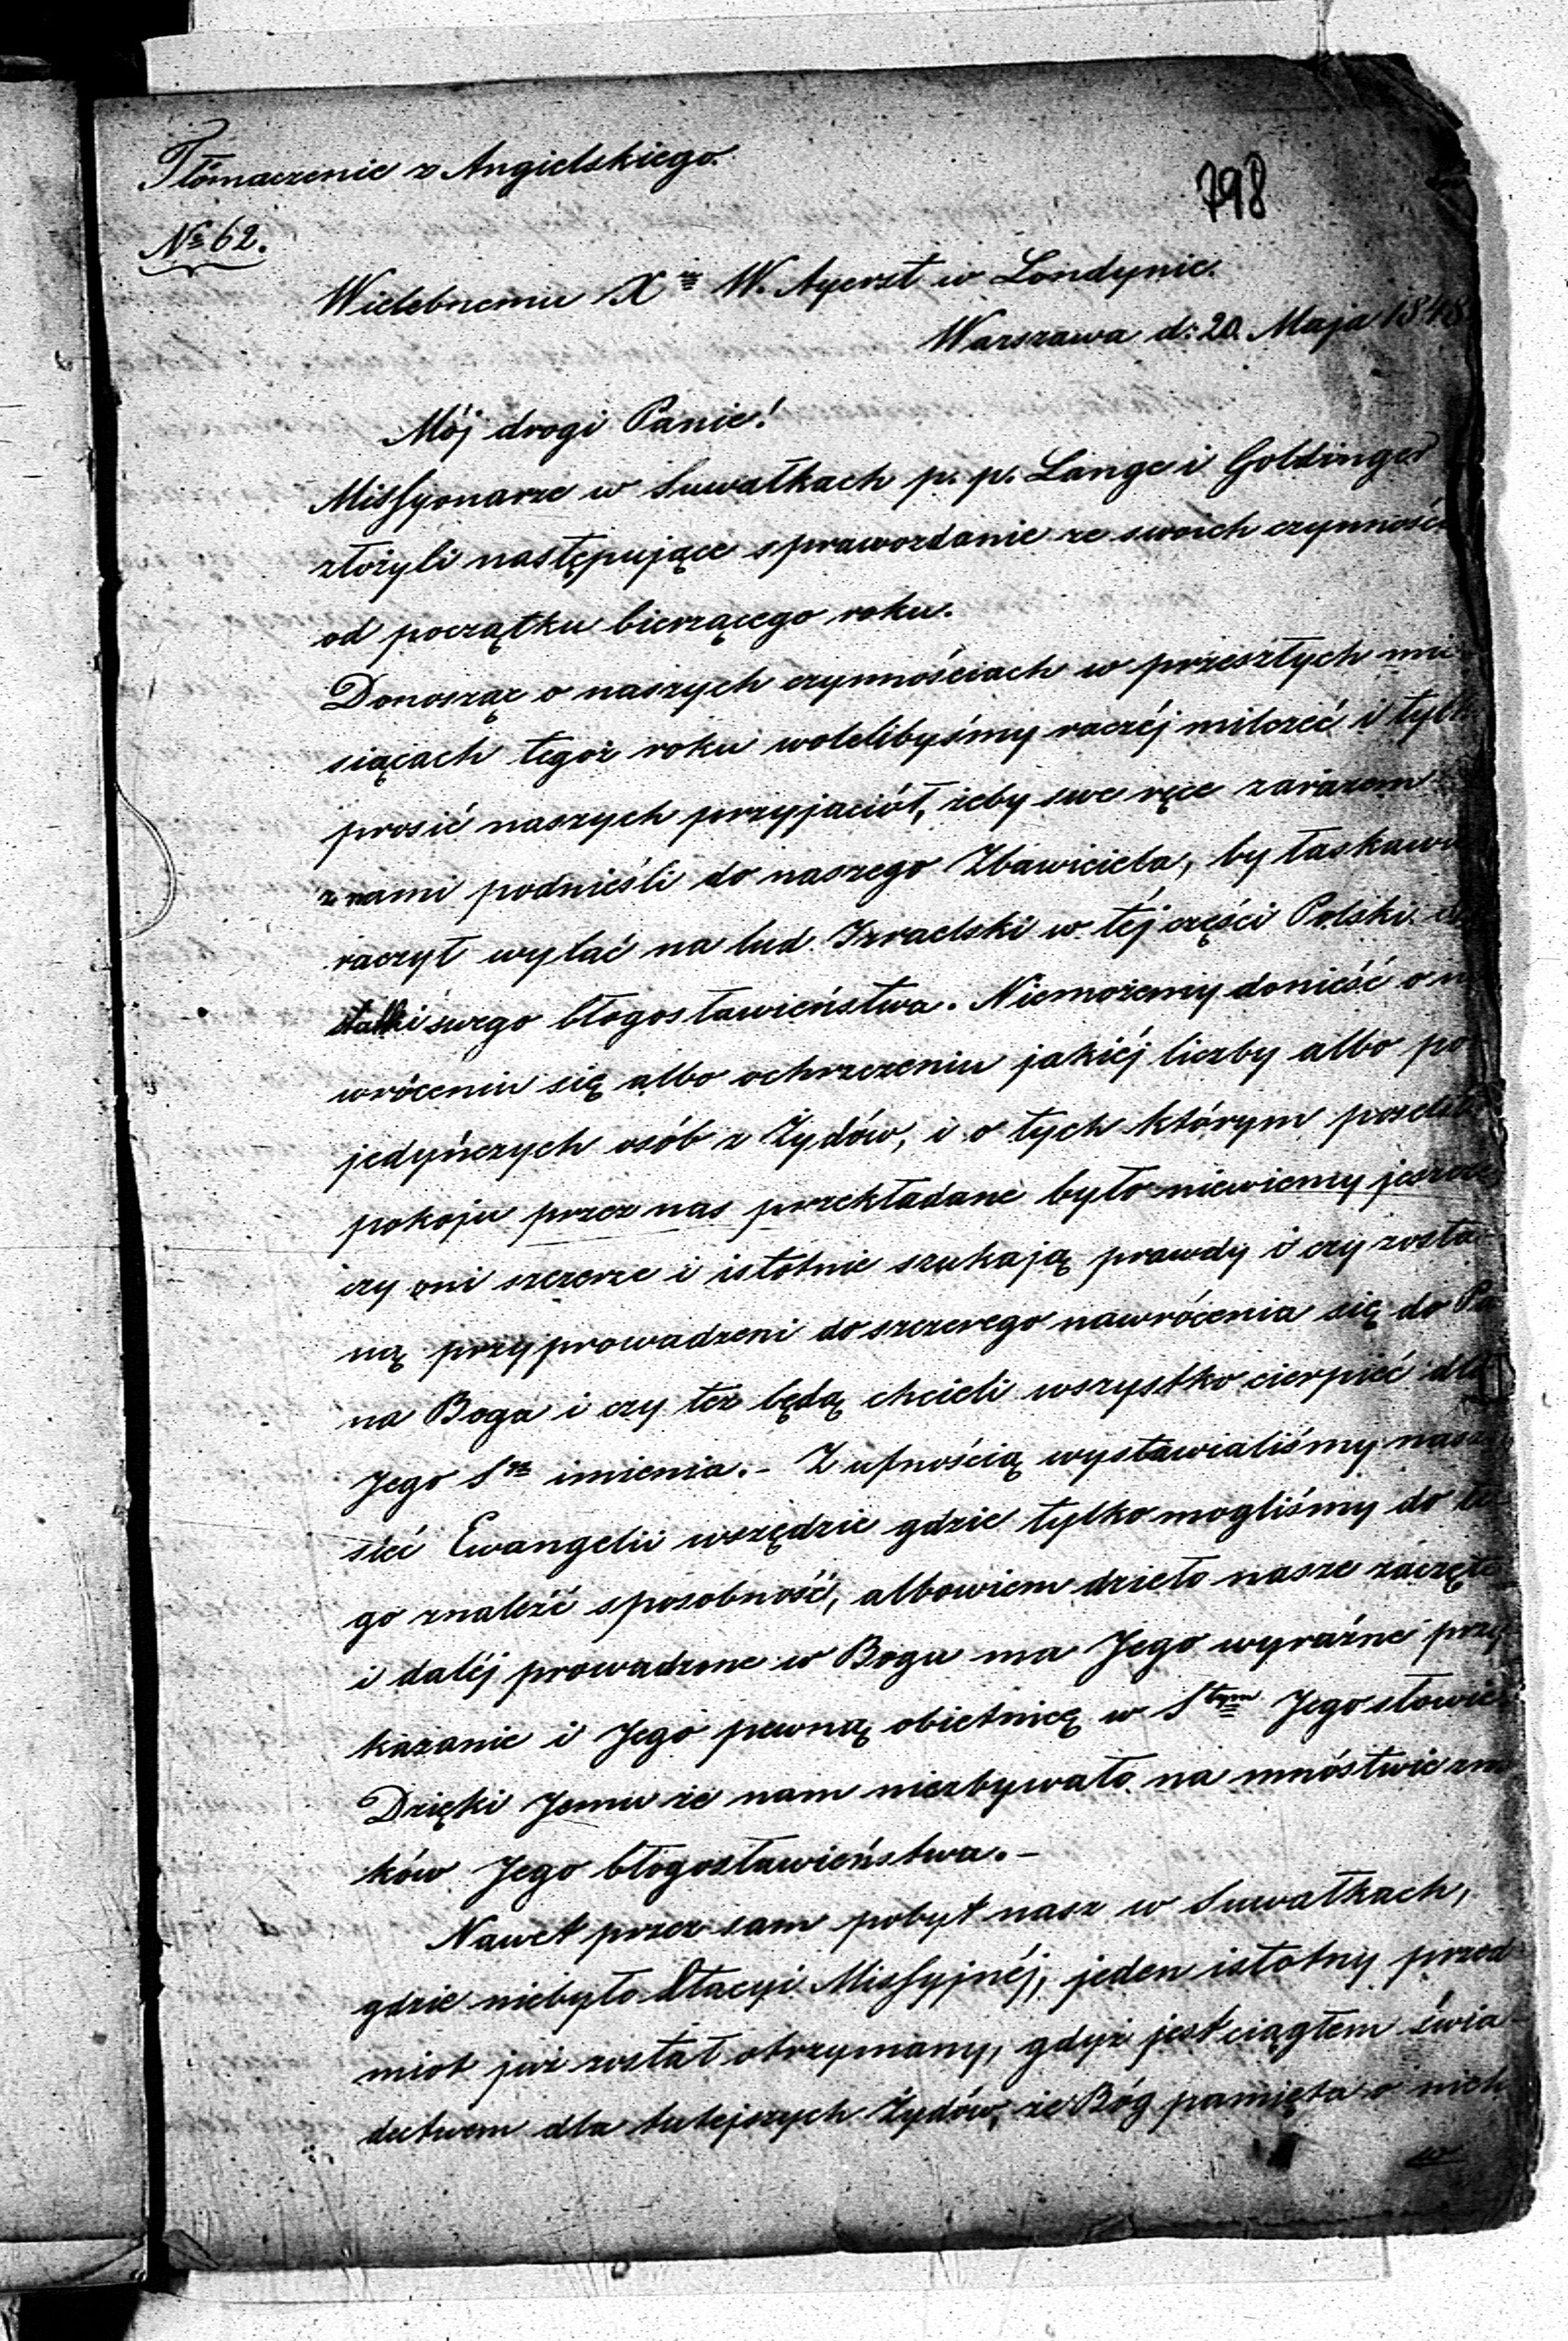 Tłómaczenie z Angielskiego.
798
No 62.
Wielebnemu Xu W. Ayerst w Londynie.
Warszawa d: 20. Maja 1848
Mój drogi Panie!
Missyonarze w Suwałkach p. p. Lange i Goldinger
złożyli następujące sprawozdanie ze swoich czynnośc
od początku bierzącego roku.
Donosząc o naszych czynnościach w przeszłych mie
siącach tegoż roku wolelibyśmy raczéj milczeć i tylk
prosić naszych przyjaciół, żeby swe ręce zarazem
z nami podnieśli do naszego Zbawiciela, by łaskawie
raczył wylać na lud Izraelski w téj części Polski
swego błogosławieństwa. Niemożemy donieść o n
wróceniu się albo ochrzczeniu jakiéj liczby albo po
jedyńczych osób z Żydów, i o tych którym poselst
pokoju przez nas przekładane było niewiemy jeszcze
czy oni szczerze i istotnie szukają prawdy i czy zosta
ną przyprowadzeni do szczerego nawrócenia się do Pa
na Boga i czy też będą chcieli wszystko cierpieć dla
Jego Sgo imienia. - Z ufnością wystawialiśmy nasz
sieć Ewangelii wszędzie gdzie tylko mogliśmy do te
go znaleźć sposobność, albowiem dzieło nasze zaczęte
i daléj prowadzone w Bogu ma Jego wyraźne przy
kazanie i Jego pewną obietnicę w Stym Jego słowie.
Dzięki Jemu że nam niezbywało na mnóstwie zna
ków Jego błogosławieństwa. -
Nawet przez sam pobyt nasz w Suwałkach,
gdzie niebyło Stacyi Missyjnéj, jeden istotny przed
miot już został otrzymany, gdyż jest ciągłem świa
dectwem dla tutejszych Żydów, że Bóg pamięta o nich
w